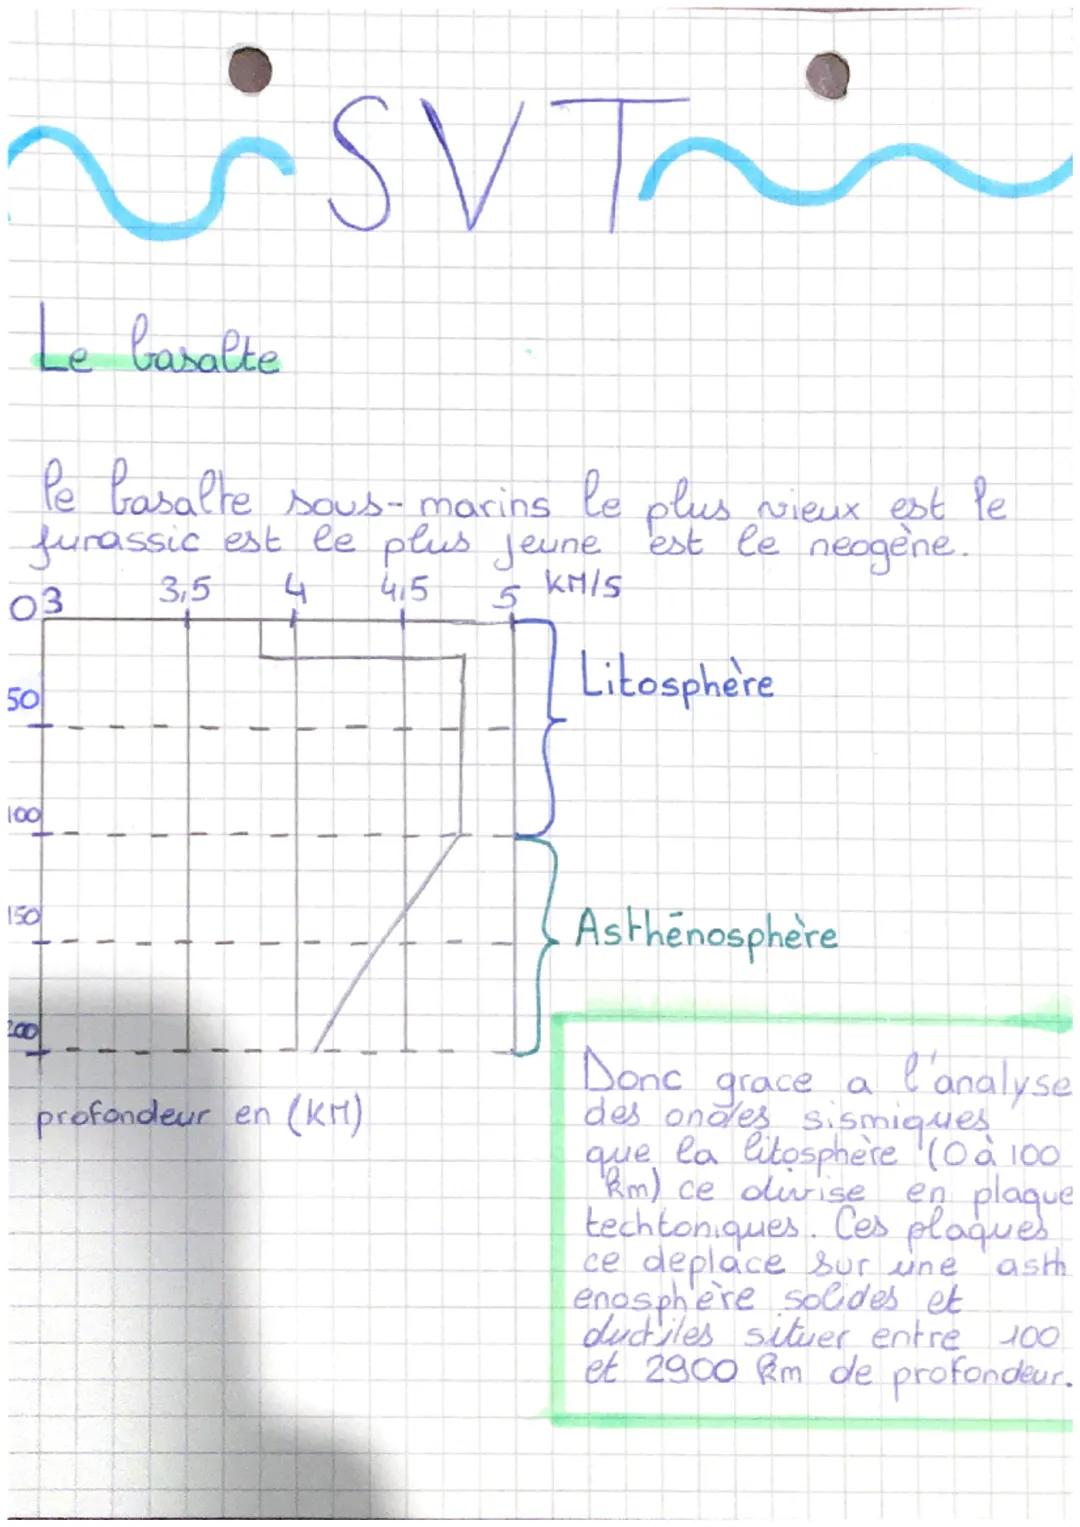 SVT
Le basalte
le basalte sous-marins le plus vieux est le
jurassic est le plus jeune est le neogène.
3 3,5 4 4,5 5 KM/S
0
Litosphère
50
100
150
Asthénosphère
200
Donc grace a l'analyse
des ondes sismiques
que la litosphère (0 à 100
km) ce divise en plaque
techtoniques. Ces plaques
ce deplace sur une asth
enosphère solides et
ductiles situer entre 100
et 2900 km de profondeur.
profondeur en (KM)